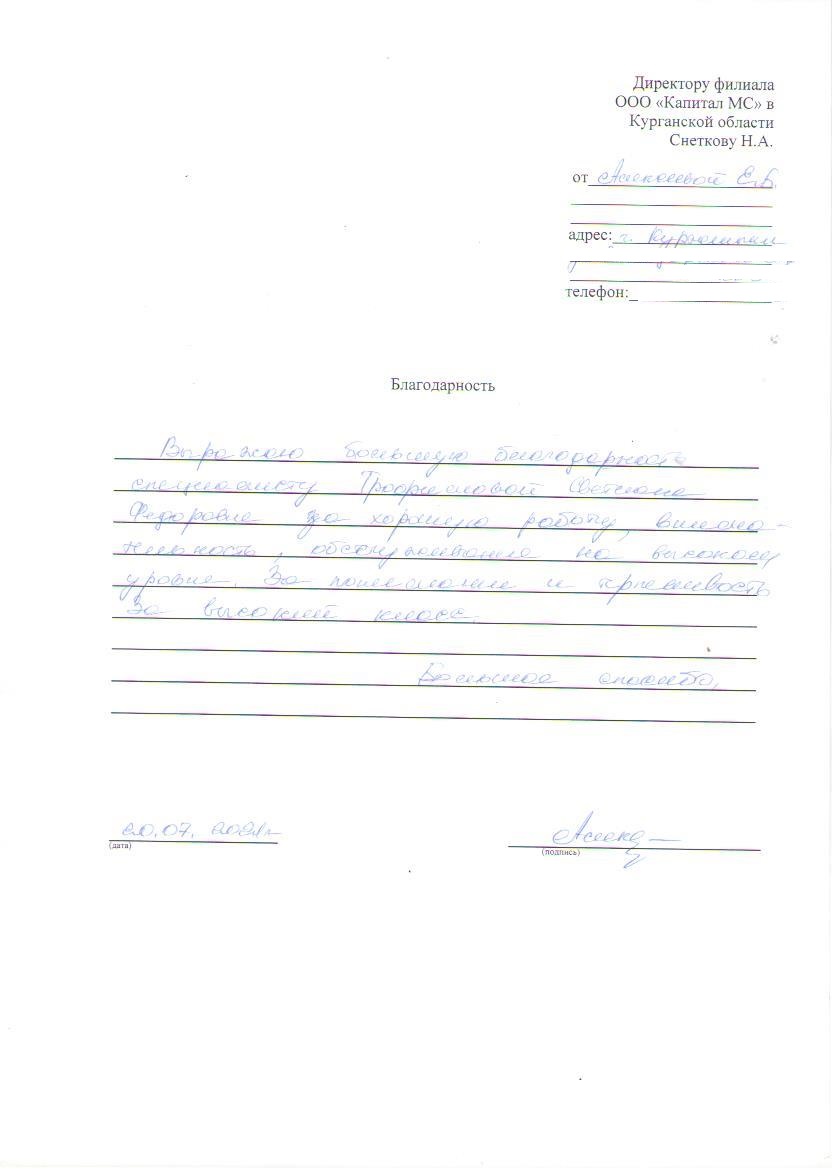 Директору филиала
ООО «Капитал МС» в
Курганской области
Снеткову Н.А.
от Алексеевой Е.Б.
адрес: г. Куртамыш
телефон:
Благодарность
Выражаю большую благодарность
специалисту Трофимовой Светлане
Федоровне за хорошую работу, внима-
тельность, обслуживание на высоком
уровне. За понимание и
За высокий класс.
Большое спасибо.
20.07.2021г
(дата)
(подпись)